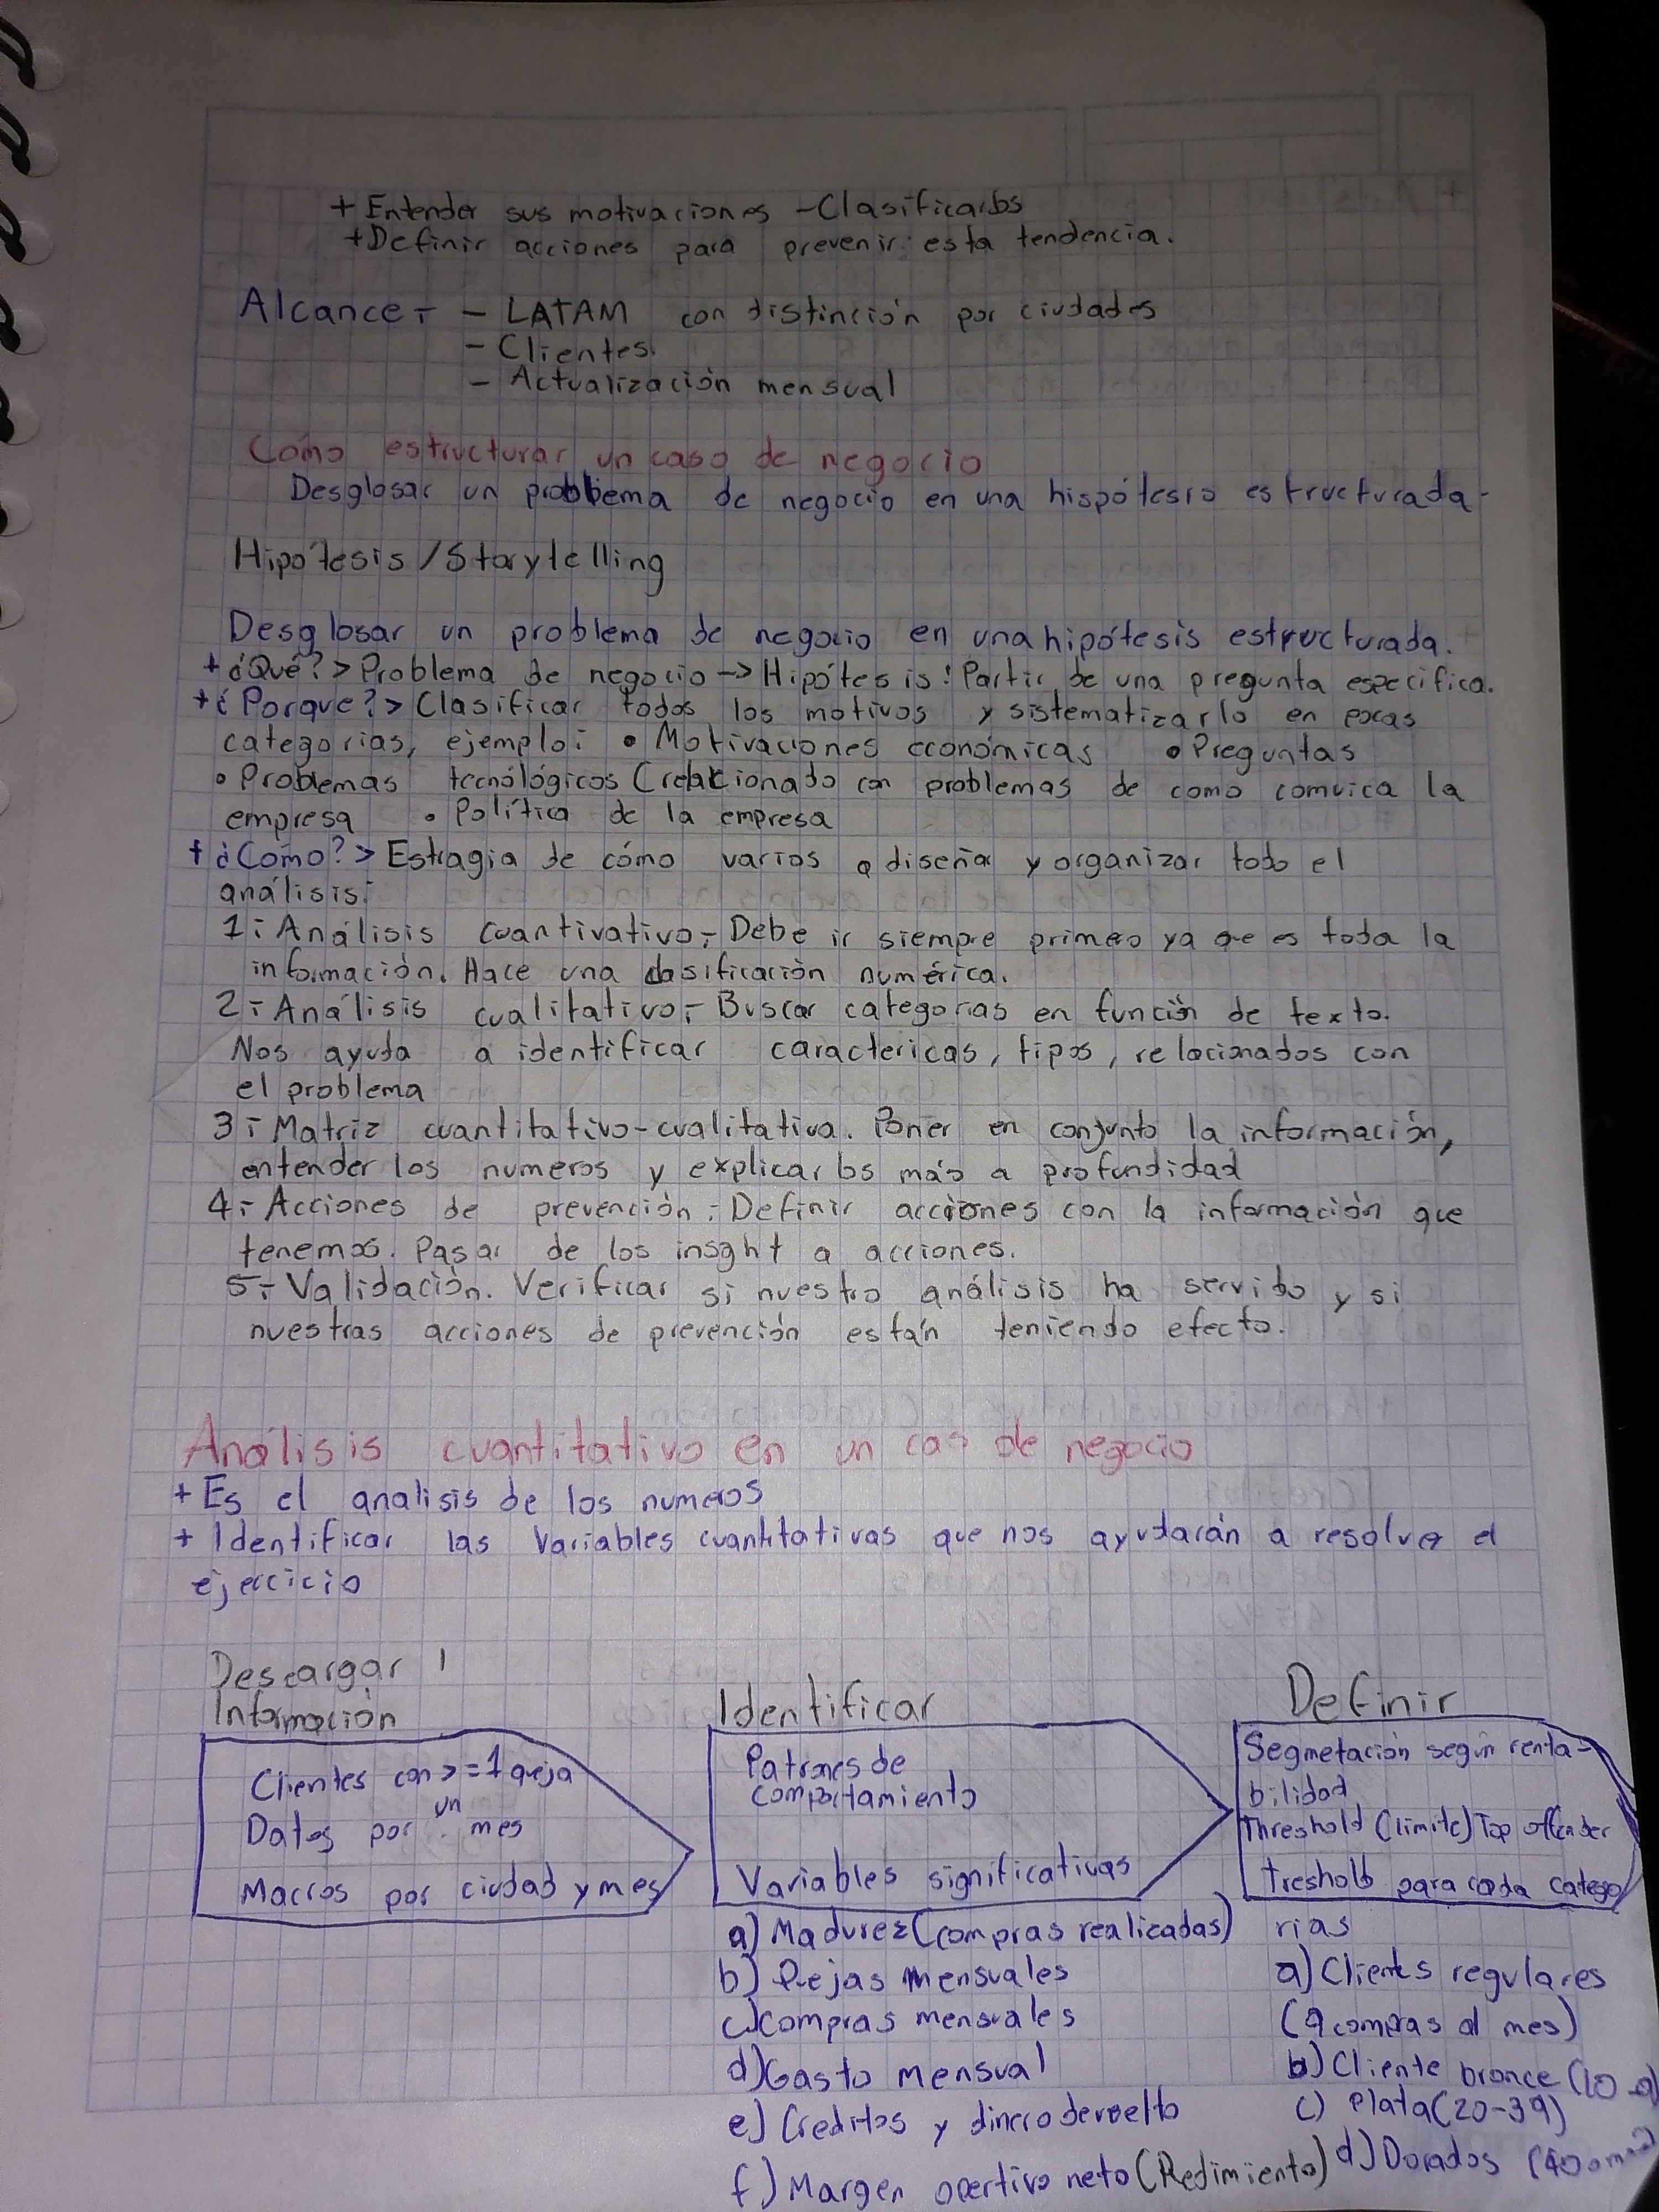 + Entender sus motivaciones - Clasificarlos
+ Definir acciones para prevenir esta tendencia.
Alcance.- - LATAM con distinción por ciudades
- Clientes
- Actualización mensual
Cómo estructurar un caso de negocio
Desglosar un problema de negocio en una hispótesis estructurada
Hipótesis / Storytelling
Desglosar un problema de negocio en una hipótesis estructurada.
+ ¿Qué? > Problema de negocio -> Hipótesis: Partir de una pregunta especifica.
+ ¿Porque? > Clasificar todos los motivos y sistematizarlo en pocas
categorias, ejemplo: • Motivaciones económicas • Preguntas
• Problemas tecnólógicos (relacionado con problemas de como comuica la
empresa • Política de la empresa
+ ¿Cómo? > Estragia de cómo varios a diseñar y organizar todo el
análisis:
1.- Análisis cuantivativo.- Debe ir siempre primero ya que es toda la
información. Hace una clasificación numérica.
2.- Análisis cualitativo.- Buscar categorias en función de texto.
Nos ayuda a identificar caractericas, tipos, relacionados con
el problema
3.- Matriz cuantitativo-cualitativa. Poner en conjunto la información,
entender los numeros y explicarlos más a profundidad
4.- Acciones de prevención.- Definir acciones con la información que
tenemos. Pasar de los insght a acciones.
5.- Validación. Verificar si nuestro análisis ha servido y si
nuestras acciones de prevención están teniendo efecto.
Análisis cuantitativo en un caso de negocio
+ Es el analisis de los numeros
+ Identificar las variables cuantitativas que nos ayudarán a resolver el
ejercicio
Descargar
Información
Clientes con >= 1 queja
Datos por un mes
Macros por ciudad y mes
Identificar
Patrones de
comportamiento
Variables significativas
a) Madurez (compras realizadas)
b) Quejas mensuales
c) compras mensuales
d) Gasto mensual
e) Creditos y dinero devuelto
f) Margen opertivo neto (Redimiento)
Definir
Segmetación según renta-
bilidad
Threshold (limite) Top offender
treshold para cada catego
rias
a) Clientes regulares
(9 compras al mes)
b) Cliente bronce (10
c) Plata (20-39)
d) Dorados (40 o